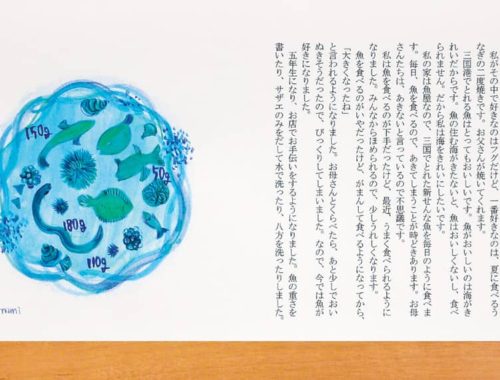 私がその中で好きなのはフグだけど、一番好きなのは、夏に食べるう
なぎの二度焼きです。お父さんが焼いてくれます。
三国港でとれる魚はとってもおいしいです。魚がおいしいのは海がき
れいだからです。魚の住む海がきたないと、魚はおいしくないし、食べ
られません。だから私は海をきれいにしたいです。
私の家は魚屋なので、三国でとれた新せんな魚を毎日のように食べま
す。毎日、魚を食べるので、あきてしまうことが時どきあります。お母
さんたちは、あきないと言っているので不思議です。
私は魚を食べるのが下手だったけど、最近、うまく食べられるように
なりました。みんなからほめられるので、少しうれしくなります。
魚を食べるのがいやだったけど、がまんして食べるようになってから、
「大きくなったね」
と言われるようになりました。お母さんとくらべたら、あと少しでおい
ぬきそうだったので、びっくりしてしまいました。なので、今では魚が
好きになりました。
五年生になり、お店でお手伝いをするようになりました。魚の重さを
書いたり、サザエのみをだして水で洗ったり、八方を洗ったりしました。
150g
50g
180g
110g